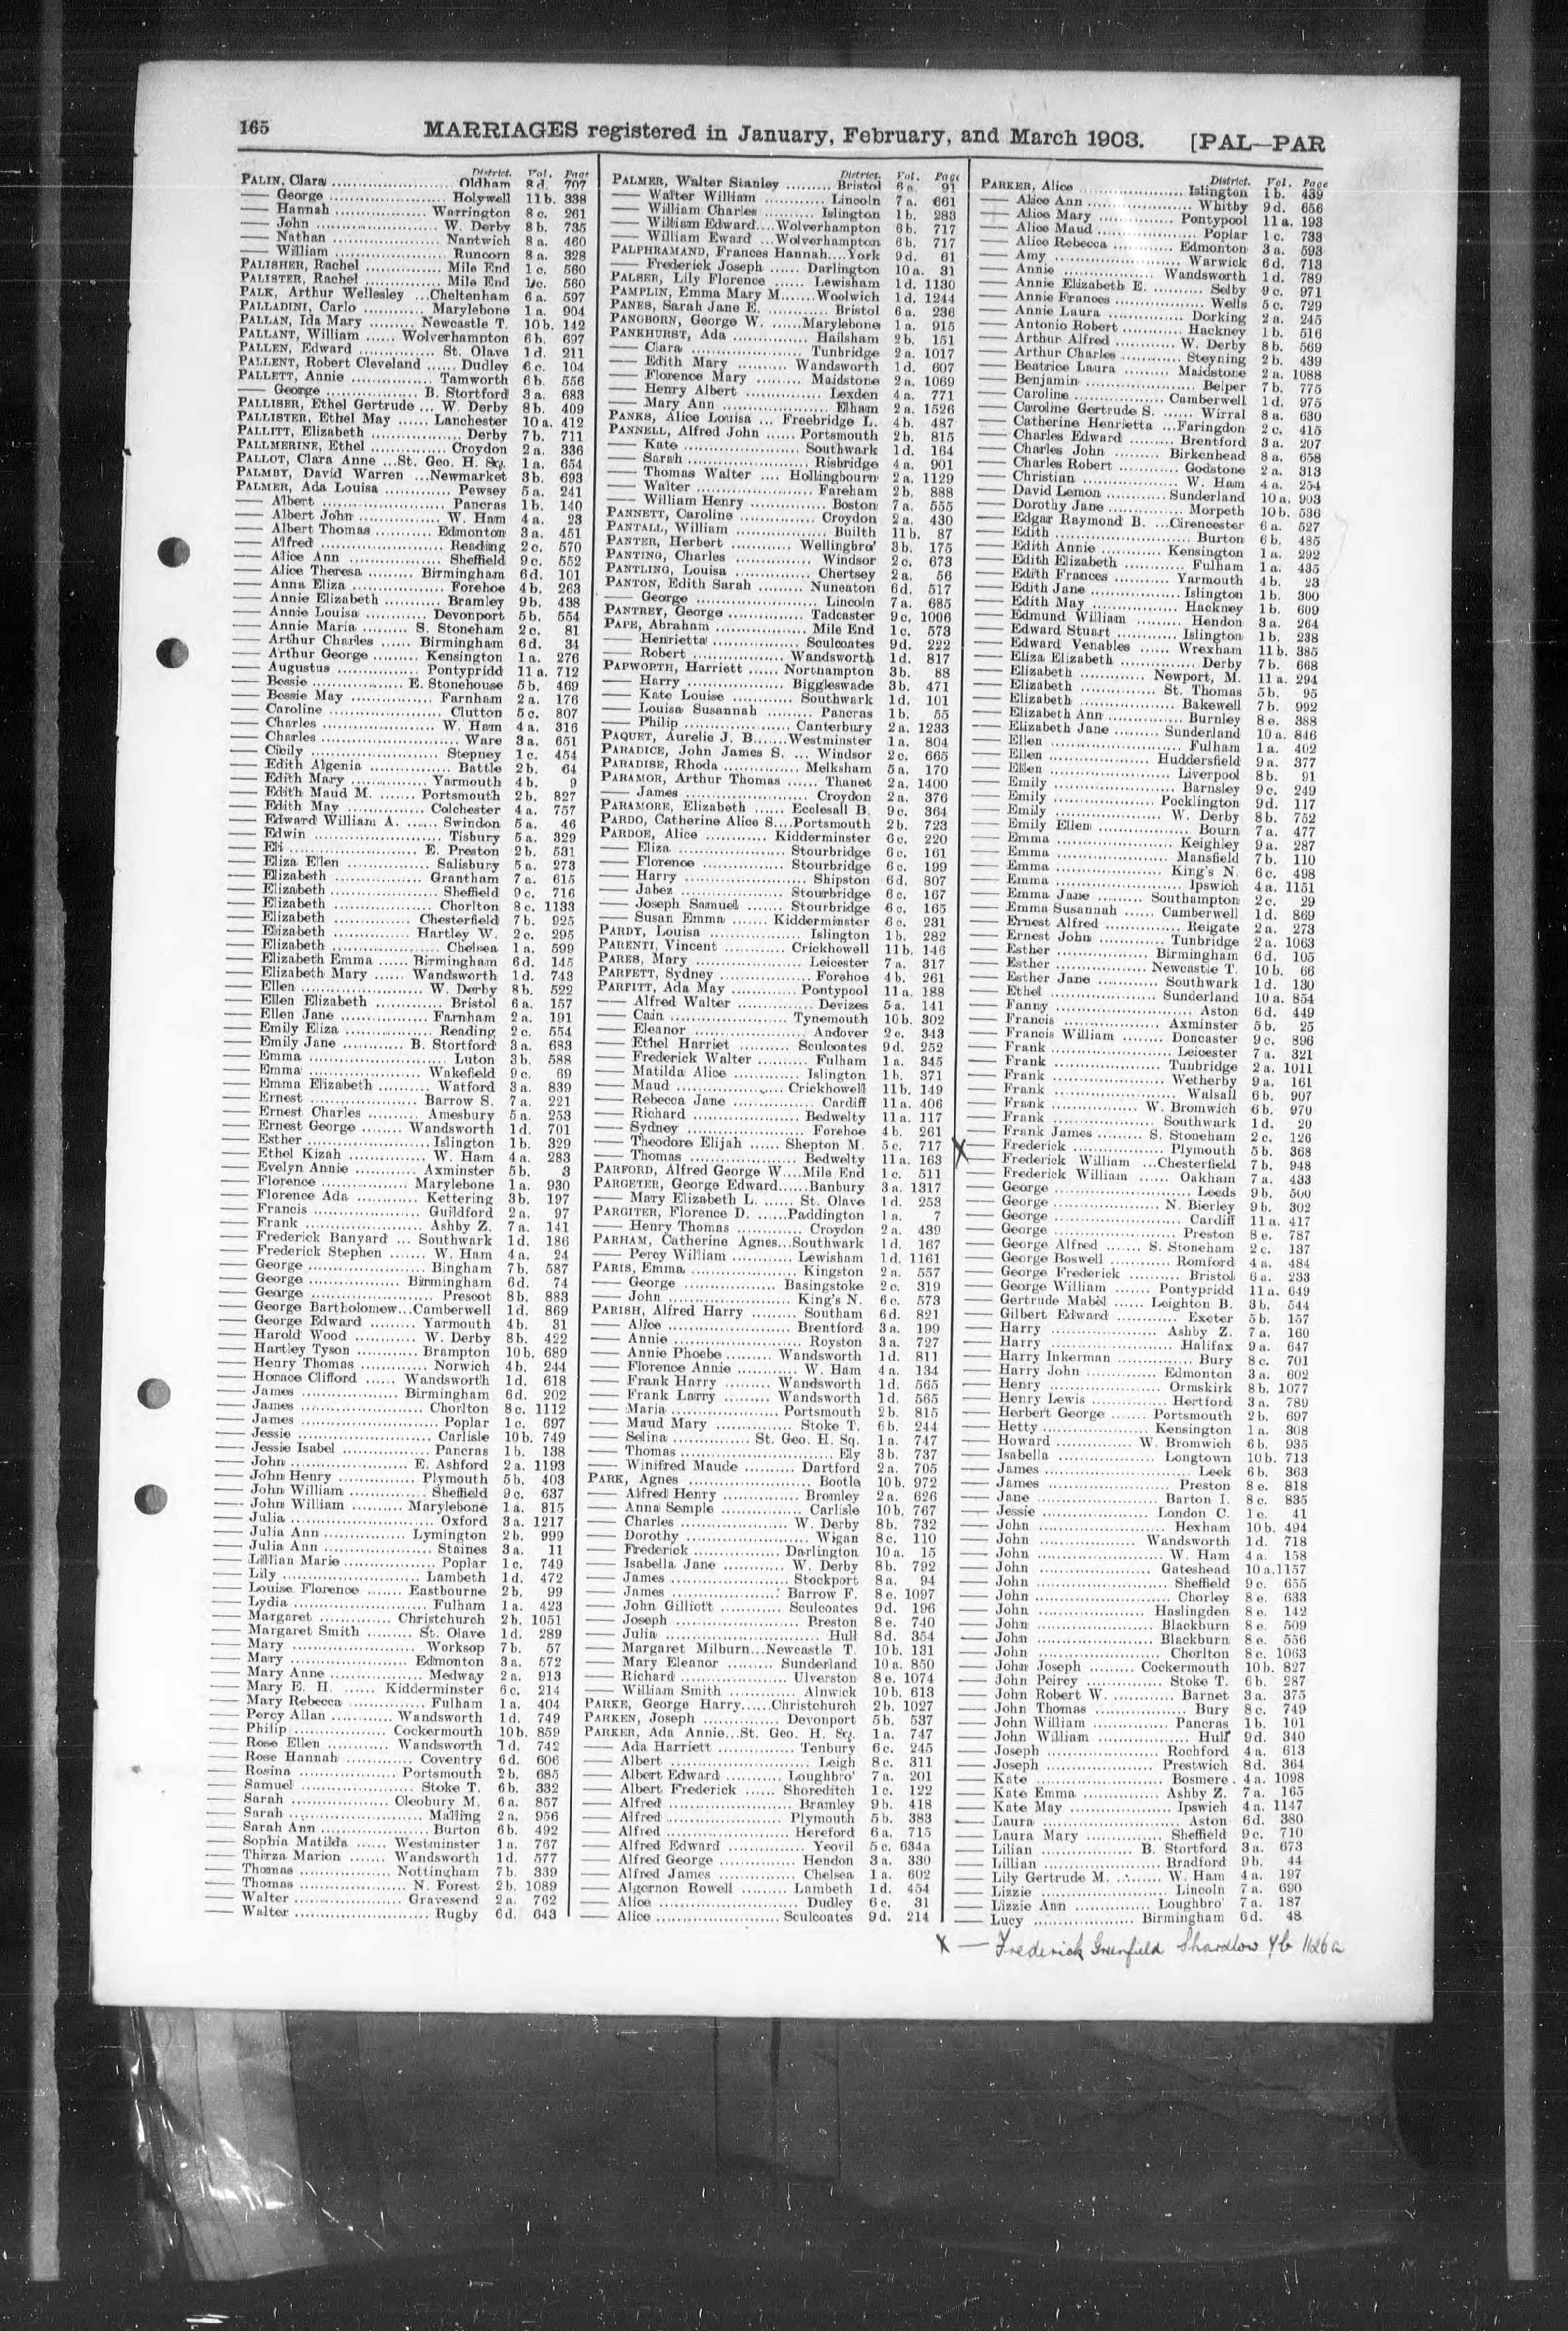 165 MARRIAGES registered in January, February, and March 1903. [PAL—PAR
District. Vol. Page
PALIN, Clara ... Oldham 8 d. 707
—— George ... Holywell 11 b. 338
—— Hannah ... Warrington 8 c. 261
—— John ... W. Derby 8 b. 735
—— Nathan ... Nantwich 8 a. 460
—— William ... Runcorn 8 a. 328
PALISHER, Rachel ... Mile End 1 c. 560
PALISTER, Rachel ... Mile End 1 c. 560
PALK, Arthur Wellesley ... Cheltenham 6 a. 597
PALLADINI, Carlo ... Marylebone 1 a. 904
PALLAN, Ida Mary ... Newcastle T. 10 b. 142
PALLANT, William ... Wolverhampton 6 b. 697
PALLEN, Edward ... St. Olave 1 d. 211
PALLENT, Robert Cleveland ... Dudley 6 c. 104
PALLETT, Annie ... Tamworth 6 b. 556
—— George ... B. Stortford 3 a. 683
PALLISER, Ethel Gertrude ... W. Derby 8 b. 409
PALLISTER, Ethel May ... Lanchester 10 a. 412
PALLITT, Elizabeth ... Derby 7 b. 711
PALLMERINE, Ethel ... Croydon 2 a. 336
PALLOT, Clara Anne ... St. Geo. H. Sq. 1 a. 654
PALMBY, David Warren ... Newmarket 3 b. 693
PALMER, Ada Louisa ... Pewsey 5 a. 241
—— Albert ... Pancras 1 b. 140
—— Albert John ... W. Ham 4 a. 23
—— Albert Thomas ... Edmonton 3 a. 451
—— Alfred ... Reading 2 c. 570
—— Alice Ann ... Sheffield 9 c. 552
—— Alice Theresa ... Birmingham 6 d. 101
—— Anna Eliza ... Forehoe 4 b. 263
—— Annie Elizabeth ... Bramley 9 b. 438
—— Annie Louisa ... Devonport 5 b. 554
—— Annie Maria ... S. Stoneham 2 c. 81
—— Arthur Charles ... Birmingham 6 d. 34
—— Arthur George ... Kensington 1 a. 276
—— Augustus ... Pontypridd 11 a. 712
—— Bessie ... E. Stonehouse 5 b. 469
—— Bessie May ... Farnham 2 a. 176
—— Caroline ... Clutton 5 c. 807
—— Charles ... W. Ham 4 a. 316
—— Charles ... Ware 3 a. 651
—— Cicily ... Stepney 1 c. 454
—— Edith Algenia ... Battle 2 b. 64
—— Edith Mary ... Yarmouth 4 b. 9
—— Edith Maud M. ... Portsmouth 2 b. 827
—— Edith May ... Colchester 4 a. 757
—— Edward William A. ... Swindon 5 a. 46
—— Edwin ... Tisbury 5 a. 329
—— Eli ... E. Preston 2 b. 531
—— Eliza Ellen ... Salisbury 5 a. 273
—— Elizabeth ... Grantham 7 a. 615
—— Elizabeth ... Sheffield 9 c. 716
—— Elizabeth ... Chorlton 8 c. 1133
—— Elizabeth ... Chesterfield 7 b. 925
—— Elizabeth ... Hartley W. 2 c. 295
—— Elizabeth ... Chelsea 1 a. 599
—— Elizabeth Emma ... Birmingham 6 d. 145
—— Elizabeth Mary ... Wandsworth 1 d. 743
—— Ellen ... W. Derby 8 b. 522
—— Ellen Elizabeth ... Bristol 6 a. 157
—— Ellen Jane ... Farnham 2 a. 191
—— Emily Eliza ... Reading 2 c. 554
—— Emily Jane ... B. Stortford 3 a. 683
—— Emma ... Luton 3 b. 588
—— Emma ... Wakefield 9 c. 69
—— Emma Elizabeth ... Watford 3 a. 839
—— Ernest ... Barrow S. 7 a. 221
—— Ernest Charles ... Amesbury 5 a. 253
—— Ernest George ... Wandsworth 1 d. 701
—— Esther ... Islington 1 b. 329
—— Ethel Kizah ... W. Ham 4 a. 283
—— Evelyn Annie ... Axminster 5 b. 3
—— Florence ... Marylebone 1 a. 930
—— Florence Ada ... Kettering 3 b. 197
—— Francis ... Guildford 2 a. 97
—— Frank ... Ashby Z. 7 a. 141
—— Frederick Banyard ... Southwark 1 d. 186
—— Frederick Stephen ... W. Ham 4 a. 24
—— George ... Bingham 7 b. 587
—— George ... Birmingham 6 d. 74
—— George ... Prescot 8 b. 883
—— George Bartholomew ... Camberwell 1 d. 869
—— George Edward ... Yarmouth 4 b. 31
—— Harold Wood ... W. Derby 8 b. 422
—— Hartley Tyson ... Brampton 10 b. 689
—— Henry Thomas ... Norwich 4 b. 244
—— Horace Clifford ... Wandsworth 1 d. 618
—— James ... Birmingham 6 d. 202
—— James ... Chorlton 8 c. 1112
—— James ... Poplar 1 c. 697
—— Jessie ... Carlisle 10 b. 749
—— Jessie Isabel ... Pancras 1 b. 138
—— John ... E. Ashford 2 a. 1193
—— John Henry ... Plymouth 5 b. 403
—— John William ... Sheffield 9 c. 637
—— John William ... Marylebone 1 a. 815
—— Julia ... Oxford 3 a. 1217
—— Julia Ann ... Lymington 2 b. 999
—— Julia Ann ... Staines 3 a. 11
—— Lillian Marie ... Poplar 1 c. 749
—— Lily ... Lambeth 1 d. 472
—— Louise Florence ... Eastbourne 2 b. 99
—— Lydia ... Fulham 1 a. 423
—— Margaret ... Christchurch 2 b. 1051
—— Margaret Smith ... St. Olave 1 d. 289
—— Mary ... Worksop 7 b. 57
—— Mary ... Edmonton 3 a. 572
—— Mary Anne ... Medway 2 a. 913
—— Mary E. H. ... Kidderminster 6 c. 214
—— Mary Rebecca ... Fulham 1 a. 404
—— Percy Allan ... Wandsworth 1 d. 749
—— Philip ... Cockermouth 10 b. 859
—— Rose Ellen ... Wandsworth 1 d. 742
—— Rose Hannah ... Coventry 6 d. 606
—— Rosina ... Portsmouth 2 b. 685
—— Samuel ... Stoke T. 6 b. 332
—— Sarah ... Cleobury M. 6 a. 857
—— Sarah ... Malling 2 a. 956
—— Sarah Ann ... Burton 6 b. 492
—— Sophia Matilda ... Westminster 1 a. 767
—— Thirza Marion ... Wandsworth 1 d. 577
—— Thomas ... Nottingham 7 b. 339
—— Thomas ... N. Forest 2 b. 1089
—— Walter ... Gravesend 2 a. 762
—— Walter ... Rugby 6 d. 643
District. Vol. Page
PALMER, Walter Stanley ... Bristol 6 a. 91
—— Walter William ... Lincoln 7 a. 661
—— William Charles ... Islington 1 b. 283
—— William Edward ... Wolverhampton 6 b. 717
—— William Eward ... Wolverhampton 6 b. 717
PALPHRAMAND, Frances Hannah ... York 9 d. 61
—— Frederick Joseph ... Darlington 10 a. 31
PALSER, Lily Florence ... Lewisham 1 d. 1130
PAMPLIN, Emma Mary M. ... Woolwich 1 d. 1244
PANES, Sarah Jane E. ... Bristol 6 a. 236
PANGBORN, George W. ... Marylebone 1 a. 915
PANKHURST, Ada ... Hailsham 2 b. 151
—— Clara ... Tunbridge 2 a. 1017
—— Edith Mary ... Wandsworth 1 d. 607
—— Florence Mary ... Maidstone 2 a. 1069
—— Henry Albert ... Lexden 4 a. 771
—— Mary Ann ... Elham 2 a. 1526
PANKS, Alice Louisa ... Freebridge L. 4 b. 487
PANNELL, Alfred John ... Portsmouth 2 b. 815
—— Kate ... Southwark 1 d. 164
—— Sarah ... Risbridge 4 a. 901
—— Thomas Walter ... Hollingbourn 2 a. 1129
—— Walter ... Fareham 2 b. 888
—— William Henry ... Boston 7 a. 555
PANNETT, Caroline ... Croydon 2 a. 430
PANTALL, William ... Builth 11 b. 87
PANTER, Herbert ... Wellingbro' 3 b. 175
PANTING, Charles ... Windsor 2 c. 673
PANTLING, Louisa ... Chertsey 2 a. 56
PANTON, Edith Sarah ... Nuneaton 6 d. 517
—— George ... Lincoln 7 a. 685
PANTREY, George ... Tadcaster 9 c. 1006
PAPE, Abraham ... Mile End 1 c. 573
—— Henrietta ... Sculcoates 9 d. 222
—— Robert ... Wandsworth 1 d. 817
PAPWORTH, Harriett ... Northampton 3 b. 88
—— Harry ... Biggleswade 3 b. 471
—— Kate Louise ... Southwark 1 d. 101
—— Louisa Susannah ... Pancras 1 b. 55
—— Philip ... Canterbury 2 a. 1233
PAQUET, Aurelie J. B. ... Westminster 1 a. 804
PARADICE, John James S. ... Windsor 2 c. 665
PARADISE, Rhoda ... Melksham 5 a. 170
PARAMOR, Arthur Thomas ... Thanet 2 a. 1400
—— James ... Croydon 2 a. 376
PARAMORE, Elizabeth ... Ecclesall B. 9 c. 364
PARDO, Catherine Alice S. ... Portsmouth 2 b. 723
PARDOE, Alice ... Kidderminster 6 c. 220
—— Eliza ... Stourbridge 6 c. 161
—— Florence ... Stourbridge 6 c. 199
—— Harry ... Shipston 6 d. 807
—— Jabez ... Stourbridge 6 c. 167
—— Joseph Samuel ... Stourbridge 6 c. 165
—— Susan Emma ... Kidderminster 6 c. 231
PARDY, Louisa ... Islington 1 b. 282
PARENTI, Vincent ... Crickhowell 11 b. 146
PARES, Mary ... Leicester 7 a. 317
PARFETT, Sydney ... Forehoe 4 b. 261
PARFITT, Ada May ... Pontypool 11 a. 188
—— Alfred Walter ... Devizes 5 a. 141
—— Cain ... Tynemouth 10 b. 302
—— Eleanor ... Andover 2 c. 343
—— Ethel Harriet ... Sculcoates 9 d. 252
—— Frederick Walter ... Fulham 1 a. 345
—— Matilda Alice ... Islington 1 b. 371
—— Maud ... Crickhowell 11 b. 149
—— Rebecca Jane ... Cardiff 11 a. 406
—— Richard ... Bedwelty 11 a. 117
—— Sydney ... Forehoe 4 b. 261
—— Theodore Elijah ... Shepton M. 5 c. 717
—— Thomas ... Bedwelty 11 a. 163
PARFORD, Alfred George W. ... Mile End 1 c. 511
PARGETER, George Edward ... Banbury 3 a. 1317
—— Mary Elizabeth L. ... St. Olave 1 d. 253
PARGITER, Florence D. ... Paddington 1 a. 7
—— Henry Thomas ... Croydon 2 a. 439
PARHAM, Catherine Agnes ... Southwark 1 d. 167
—— Percy William ... Lewisham 1 d. 1161
PARIS, Emma ... Kingston 2 a. 557
—— George ... Basingstoke 2 c. 319
—— John ... King's N. 6 c. 573
PARISH, Alfred Harry ... Southam 6 d. 821
—— Alice ... Brentford 3 a. 199
—— Annie ... Royston 3 a. 727
—— Annie Phoebe ... Wandsworth 1 d. 811
—— Florence Annie ... W. Ham 4 a. 134
—— Frank Harry ... Wandsworth 1 d. 565
—— Frank Larry ... Wandsworth 1 d. 565
—— Maria ... Portsmouth 2 b. 815
—— Maud Mary ... Stoke T. 6 b. 244
—— Selina ... St. Geo. H. Sq. 1 a. 747
—— Thomas ... Ely 3 b. 737
—— Winifred Maude ... Dartford 2 a. 705
PARK, Agnes ... Bootle 10 b. 972
—— Alfred Henry ... Bromley 2 a. 626
—— Anna Semple ... Carlisle 10 b. 767
—— Charles ... W. Derby 8 b. 732
—— Dorothy ... Wigan 8 c. 110
—— Frederick ... Darlington 10 a. 15
—— Isabella Jane ... W. Derby 8 b. 792
—— James ... Stockport 8 a. 94
—— James ... Barrow F. 8 e. 1097
—— John Gilliott ... Sculcoates 9 d. 196
—— Joseph ... Preston 8 e. 740
—— Julia ... Hull 8 d. 354
—— Margaret Milburn ... Newcastle T. 10 b. 131
—— Mary Eleanor ... Sunderland 10 a. 850
—— Richard ... Ulverston 8 e. 1074
—— William Smith ... Alnwick 10 b. 613
PARKE, George Harry ... Christchurch 2 b. 1027
PARKEN, Joseph ... Devonport 5 b. 537
PARKER, Ada Annie ... St. Geo. H. Sq. 1 a. 747
—— Ada Harriett ... Tenbury 6 c. 245
—— Albert ... Leigh 8 c. 311
—— Albert Edward ... Loughbro' 7 a. 201
—— Albert Frederick ... Shoreditch 1 c. 122
—— Alfred ... Bramley 9 b. 418
—— Alfred ... Plymouth 5 b. 383
—— Alfred ... Hereford 6 a. 715
—— Alfred Edward ... Yeovil 5 c. 634a
—— Alfred George ... Hendon 3 a. 330
—— Alfred James ... Chelsea 1 a. 602
—— Algernon Rowell ... Lambeth 1 d. 454
—— Alice ... Dudley 6 c. 31
—— Alice ... Sculcoates 9 d. 214
District. Vol. Page
PARKER, Alice ... Islington 1 b. 439
—— Alice Ann ... Whitby 9 d. 656
—— Alice Mary ... Pontypool 11 a. 193
—— Alice Maud ... Poplar 1 c. 733
—— Alice Rebecca ... Edmonton 3 a. 593
—— Amy ... Warwick 6 d. 713
—— Annie ... Wandsworth 1 d. 789
—— Annie Elizabeth E. ... Selby 9 c. 971
—— Annie Frances ... Wells 5 c. 729
—— Annie Laura ... Dorking 2 a. 245
—— Antonio Robert ... Hackney 1 b. 516
—— Arthur Alfred ... W. Derby 8 b. 569
—— Arthur Charles ... Steyning 2 b. 439
—— Beatrice Laura ... Maidstone 2 a. 1088
—— Benjamin ... Belper 7 b. 775
—— Caroline ... Camberwell 1 d. 975
—— Caroline Gertrude S. ... Wirral 8 a. 630
—— Catherine Henrietta ... Faringdon 2 c. 415
—— Charles Edward ... Brentford 3 a. 207
—— Charles John ... Birkenhead 8 a. 658
—— Charles Robert ... Godstone 2 a. 313
—— Christian ... W. Ham 4 a. 254
—— David Lemon ... Sunderland 10 a. 903
—— Dorothy Jane ... Morpeth 10 b. 536
—— Edgar Raymond B. ... Cirencester 6 a. 527
—— Edith ... Burton 6 b. 485
—— Edith Annie ... Kensington 1 a. 292
—— Edith Elizabeth ... Fulham 1 a. 435
—— Edith Frances ... Yarmouth 4 b. 23
—— Edith Jane ... Islington 1 b. 300
—— Edith May ... Hackney 1 b. 609
—— Edmund William ... Hendon 3 a. 264
—— Edward Stuart ... Islington 1 b. 238
—— Edward Venables ... Wrexham 11 b. 385
—— Eliza Elizabeth ... Derby 7 b. 668
—— Elizabeth ... Newport, M. 11 a. 294
—— Elizabeth ... St. Thomas 5 b. 95
—— Elizabeth ... Bakewell 7 b. 992
—— Elizabeth Ann ... Burnley 8 e. 388
—— Elizabeth Jane ... Sunderland 10 a. 846
—— Ellen ... Fulham 1 a. 402
—— Ellen ... Huddersfield 9 a. 377
—— Ellen ... Liverpool 8 b. 91
—— Emily ... Barnsley 9 c. 249
—— Emily ... Pocklington 9 d. 117
—— Emily ... W. Derby 8 b. 752
—— Emily Ellen ... Bourn 7 a. 477
—— Emma ... Keighley 9 a. 287
—— Emma ... Mansfield 7 b. 110
—— Emma ... King's N. 6 c. 498
—— Emma ... Ipswich 4 a. 1151
—— Emma Jane ... Southampton 2 c. 29
—— Emma Susannah ... Camberwell 1 d. 869
—— Ernest Alfred ... Reigate 2 a. 273
—— Ernest John ... Tunbridge 2 a. 1063
—— Esther ... Birmingham 6 d. 105
—— Esther ... Newcastle T. 10 b. 66
—— Esther Jane ... Southwark 1 d. 130
—— Ethel ... Sunderland 10 a. 854
—— Fanny ... Aston 6 d. 449
—— Francis ... Axminster 5 b. 25
—— Francis William ... Doncaster 9 c. 896
—— Frank ... Leicester 7 a. 321
—— Frank ... Tunbridge 2 a. 1011
—— Frank ... Wetherby 9 a. 161
—— Frank ... Walsall 6 b. 907
—— Frank ... W. Bromwich 6 b. 970
—— Frank ... Southwark 1 d. 20
—— Frank James ... S. Stoneham 2 c. 126
X —— Frederick ... Plymouth 5 b. 368
—— Frederick William ... Chesterfield 7 b. 948
—— Frederick William ... Oakham 7 a. 433
—— George ... Leeds 9 b. 500
—— George ... N. Bierley 9 b. 302
—— George ... Cardiff 11 a. 417
—— George ... Preston 8 e. 787
—— George Alfred ... S. Stoneham 2 c. 137
—— George Boswell ... Romford 4 a. 484
—— George Frederick ... Bristol 6 a. 233
—— George William ... Pontypridd 11 a. 649
—— Gertrude Mabel ... Leighton B. 3 b. 544
—— Gilbert Edward ... Exeter 5 b. 157
—— Harry ... Ashby Z. 7 a. 160
—— Harry ... Halifax 9 a. 647
—— Harry Inkerman ... Bury 8 c. 701
—— Harry John ... Edmonton 3 a. 602
—— Henry ... Ormskirk 8 b. 1077
—— Henry Lewis ... Hertford 3 a. 789
—— Herbert George ... Portsmouth 2 b. 697
—— Hetty ... Kensington 1 a. 308
—— Howard ... W. Bromwich 6 b. 935
—— Isabella ... Longtown 10 b. 713
—— James ... Leek 6 b. 363
—— James ... Preston 8 e. 818
—— Jane ... Barton I. 8 c. 835
—— Jessie ... London C. 1 c. 41
—— John ... Hexham 10 b. 494
—— John ... Wandsworth 1 d. 718
—— John ... W. Ham 4 a. 158
—— John ... Gateshead 10 a. 1157
—— John ... Sheffield 9 c. 655
—— John ... Chorley 8 e. 633
—— John ... Haslingden 8 e. 142
—— John ... Blackburn 8 e. 509
—— John ... Blackburn 8 e. 556
—— John ... Chorlton 8 c. 1063
—— John Joseph ... Cockermouth 10 b. 827
—— John Peircy ... Stoke T. 6 b. 287
—— John Robert W. ... Barnet 3 a. 375
—— John Thomas ... Bury 8 c. 749
—— John William ... Pancras 1 b. 101
—— John William ... Hull 9 d. 340
—— Joseph ... Rochford 4 a. 613
—— Joseph ... Prestwich 8 d. 364
—— Kate ... Bosmere 4 a. 1098
—— Kate Emma ... Ashby Z. 7 a. 165
—— Kate May ... Ipswich 4 a. 1147
—— Laura ... Aston 6 d. 380
—— Laura Mary ... Sheffield 9 c. 710
—— Lilian ... B. Stortford 3 a. 673
—— Lillian ... Bradford 9 b. 44
—— Lily Gertrude M. ... W. Ham 4 a. 197
—— Lizzie ... Lincoln 7 a. 690
—— Lizzie Ann ... Loughbro' 7 a. 187
—— Lucy ... Birmingham 6 d. 48
X — Frederick Greenfield Shardlow 7b 1126a